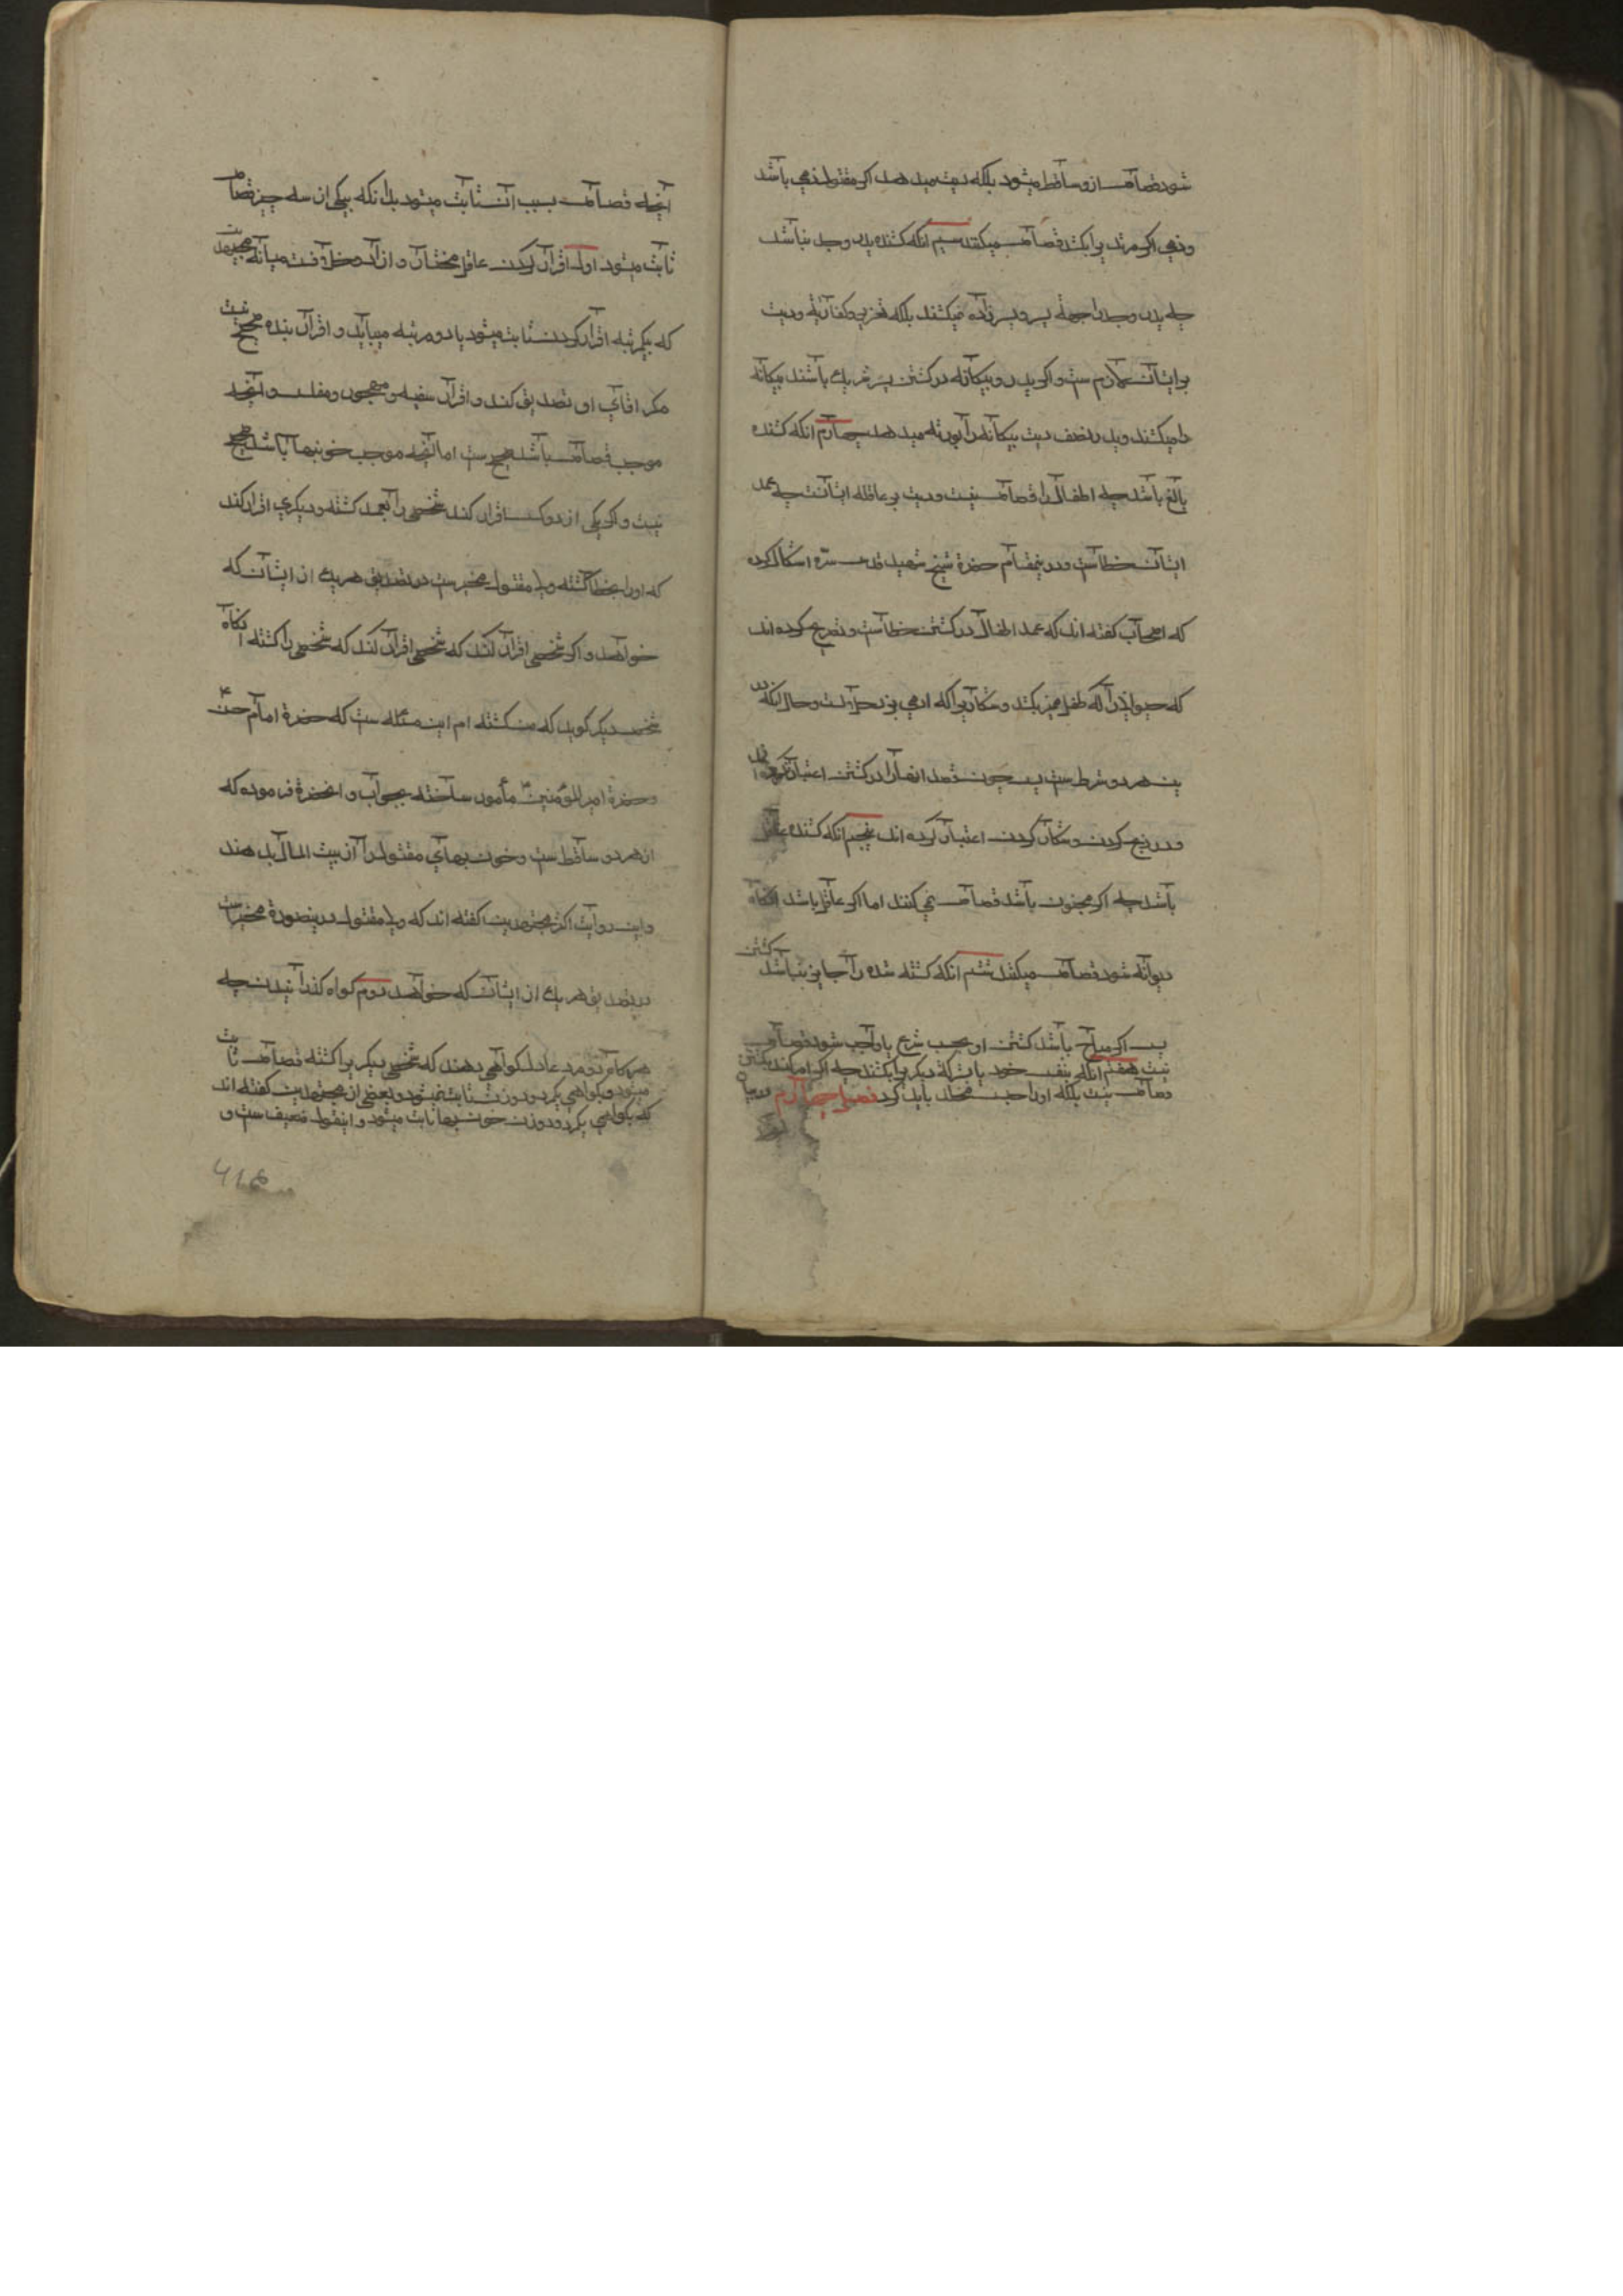 شود قصاص ازو ساقط میشود بلکه دیت میدهد اکر مقتول ذمی باشد
وذمی اکر مرتد یرا بکشد قصاص میکنند سیم انکه کشنده پدر وجد نباشد
چه پدر وجد را بجهة پسر و پسر زاده نمیکشند بلکه تعزیر وکفارة ودیت
بر ایشان لازم ست واکر پدر و بیکانه در کشتن پسر شریک باشند بیکانه
را میکشند وپدر نصف دیت بیکانه را بورثه میدهد چهارم انکه کشنده
بالغ باشد چه اطفال را قصاص نیست ودیت بر عاقله ایشانست چه عمد
ایشان خطاست ودرینمقام حضرة شیخ شهید قدس سره اشکال کرده
که اصحاب کفته اند که عمد اطفال در کشتن خطاست وتصریح کرده اند
که حیوانی را که طفل ممیز بکشد وشکاریرا که ادمی بزند حلالست وحال انکه در
ین هر دو شرط ست پس چون قصد ایشانرا در کشتن اعتبار نکرده اند
ودر ذبح کردن وشکار کردن اعتبار کرده اند پنجم انکه کشنده عاقل
باشد چه اکر مجنون باشد قصاص نمی کنند اما اکر عاقل باشد انکاه
دیوانه شود قصاص میکنند ششم انکه کشته شده را جایز نباشد کشتن
پس اکر مباح باشد کشتن او بحسب شرع یا واجب شود قصاص
نیست هفتم انکه بنفس خود یا بشرکة دیکریرا بکشند چه اکر امر کند بکشتن
قصاص نیست بلکه اورا حبس مخلد باید کرد فصل چهارم در بیان
انچه قصاص بسبب ان ثابت میشود بدانکه بیکی از سه چیز قصاص
ثابت میشود اول اقرار کردن عاقل مختار و ازاد وخلافست میانه مجتهدین
که بیکمرتبه اقرار کردن ثابت میشود یا دو مرتبه میباید و اقرار بنده صحیح نیست
مکر اقای او تصدیق کند و اقرار سفیه و محجور ومفلس و انچه
موجب قصاص باشد صحیح ست اما انچه موجب خونبها باشد صحیح
نیست واکر یکی از دو کس اقرار کند شخصی را بعمد کشته ودیکری اقرار کند
که اورا بخطا کشته ولی مقتول مخیر ست در تصدیق هر یک از ایشان که
خواهد و اکر شخصی اقرار کند که شخصی اقرار کند که شخصی را کشته انکاه
شخص دیکر کوید که من کشته ام این مسئله ست که حضرة امام حسن ع
وحضرة امیر المؤمنین ع مأمور ساخته بجواب و انحضرة فرموده که
از هر دو ساقط ست وخون بهای مقتول را از بیت المال بدهند
واین روایت اکثر مجتهدین کفته اند که ولی مقتول درینصورة مخیر است
در تصدیق هر یک از ایشان که خواهد دوم کواه کذرانیدن چه
هر کاه دو مرد عادل کواهی دهند که شخصی دیکریرا کشته قصاص ثابت
میشود وبکواهی یکمرد ودو زن ثابت نمیشود وبعضی از مجتهدین کفته اند
که بکواهی یکمرد ودو زن خون بها ثابت میشود و اینقول ضعیف ست و